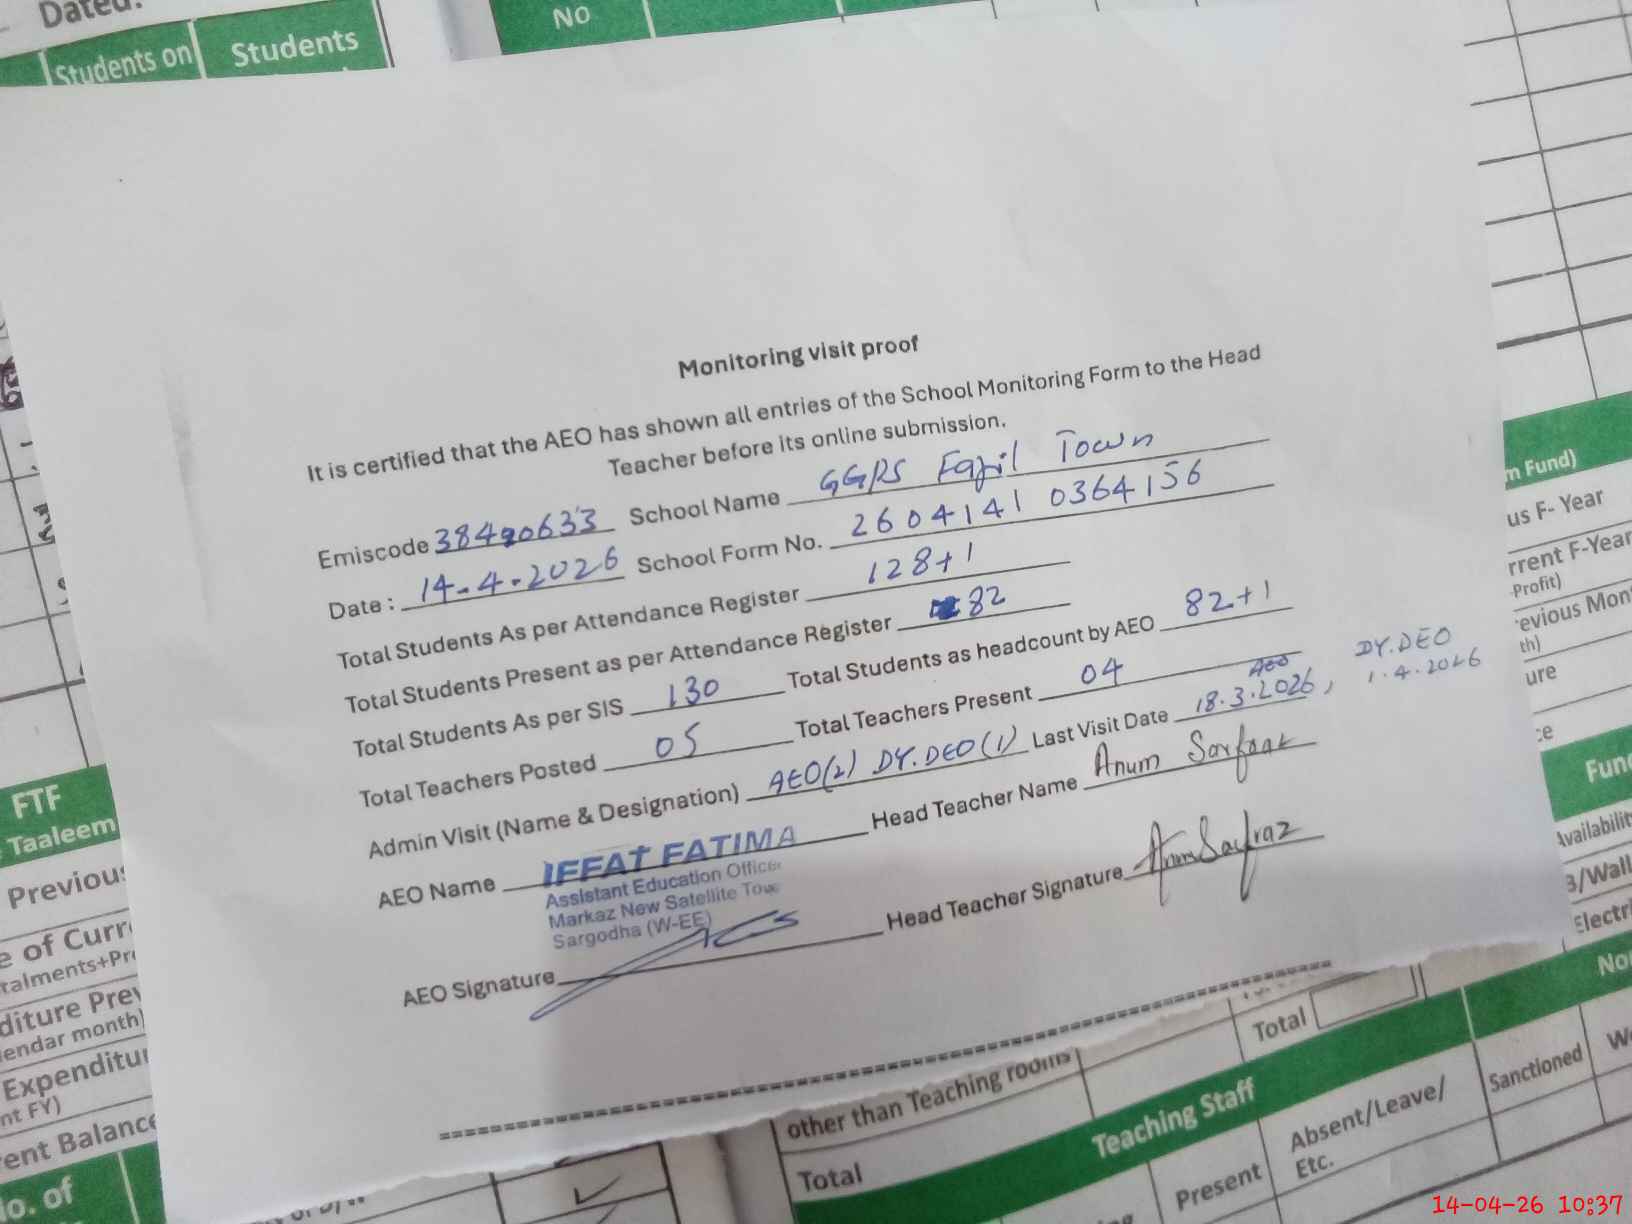 Dated:
Students on
Students
No
Monitoring visit proof
It is certified that the AEO has shown all entries of the School Monitoring Form to the Head
Teacher before its online submission.
Emiscode 38490633 School Name GGPS Fazil Town
Date : 14-4-2026 School Form No. 26041410364156
Total Students As per Attendance Register 128+1
Total Students Present as per Attendance Register 82
Total Students As per SIS 130 Total Students as headcount by AEO 82+1
Total Teachers Posted 05 Total Teachers Present 04
Admin Visit (Name & Designation) AEO(2) DY.DEO(1) Last Visit Date AEO 18.3.2026, DY.DEO 1.4.2026
AEO Name IFFAT FATIMA Head Teacher Name Anum Sarfraz
Assistant Education Officer
Markaz New Satellite Town
Sargodha (W-EE)
AEO Signature Head Teacher Signature Anum Sarfraz
FTF
Taaleem
Previous
e of Curr
talments+Pr
diture Prev
endar month)
Expenditu
nt FY)
ent Balance
No. of
m Fund)
us F- Year
rrent F-Year
Profit)
evious Mon
th)
ure
ce
Func
Availabilit
B/Wall
Electri
No
Total
other than Teaching rooms
Total
Teaching Staff
Present
Absent/Leave/
Etc.
Sanctioned
14-04-26 10:37